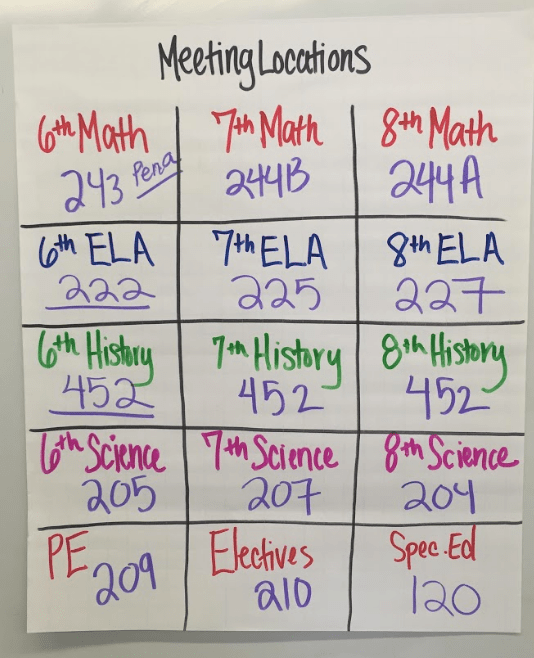 Meeting Locations
6th Math 7th Math 8th Math
243 Pena 244B 244A
6th ELA 7th ELA 8th ELA
222 225 227
6th History 7th History 8th History
452 452 452
6th Science 7th Science 8th Science
205 207 204
PE Electives Spec.Ed
209 210 120